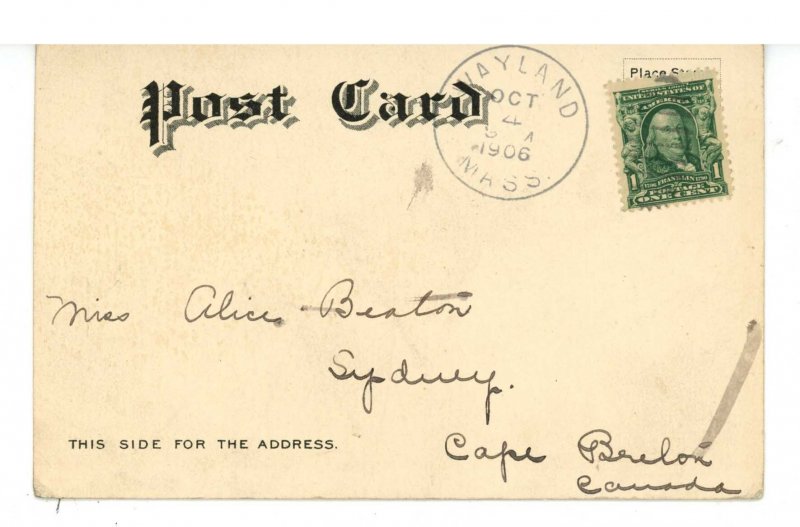 Post Card
WAYLAND
OCT
4
1906
MASS.
Place
UNITED STATES OF
AMERICA
1 FRANKLIN 1
POSTAGE
ONE CENT
Miss Alice Beaton
Sydney.
THIS SIDE FOR THE ADDRESS.
Cape Breton
Canada